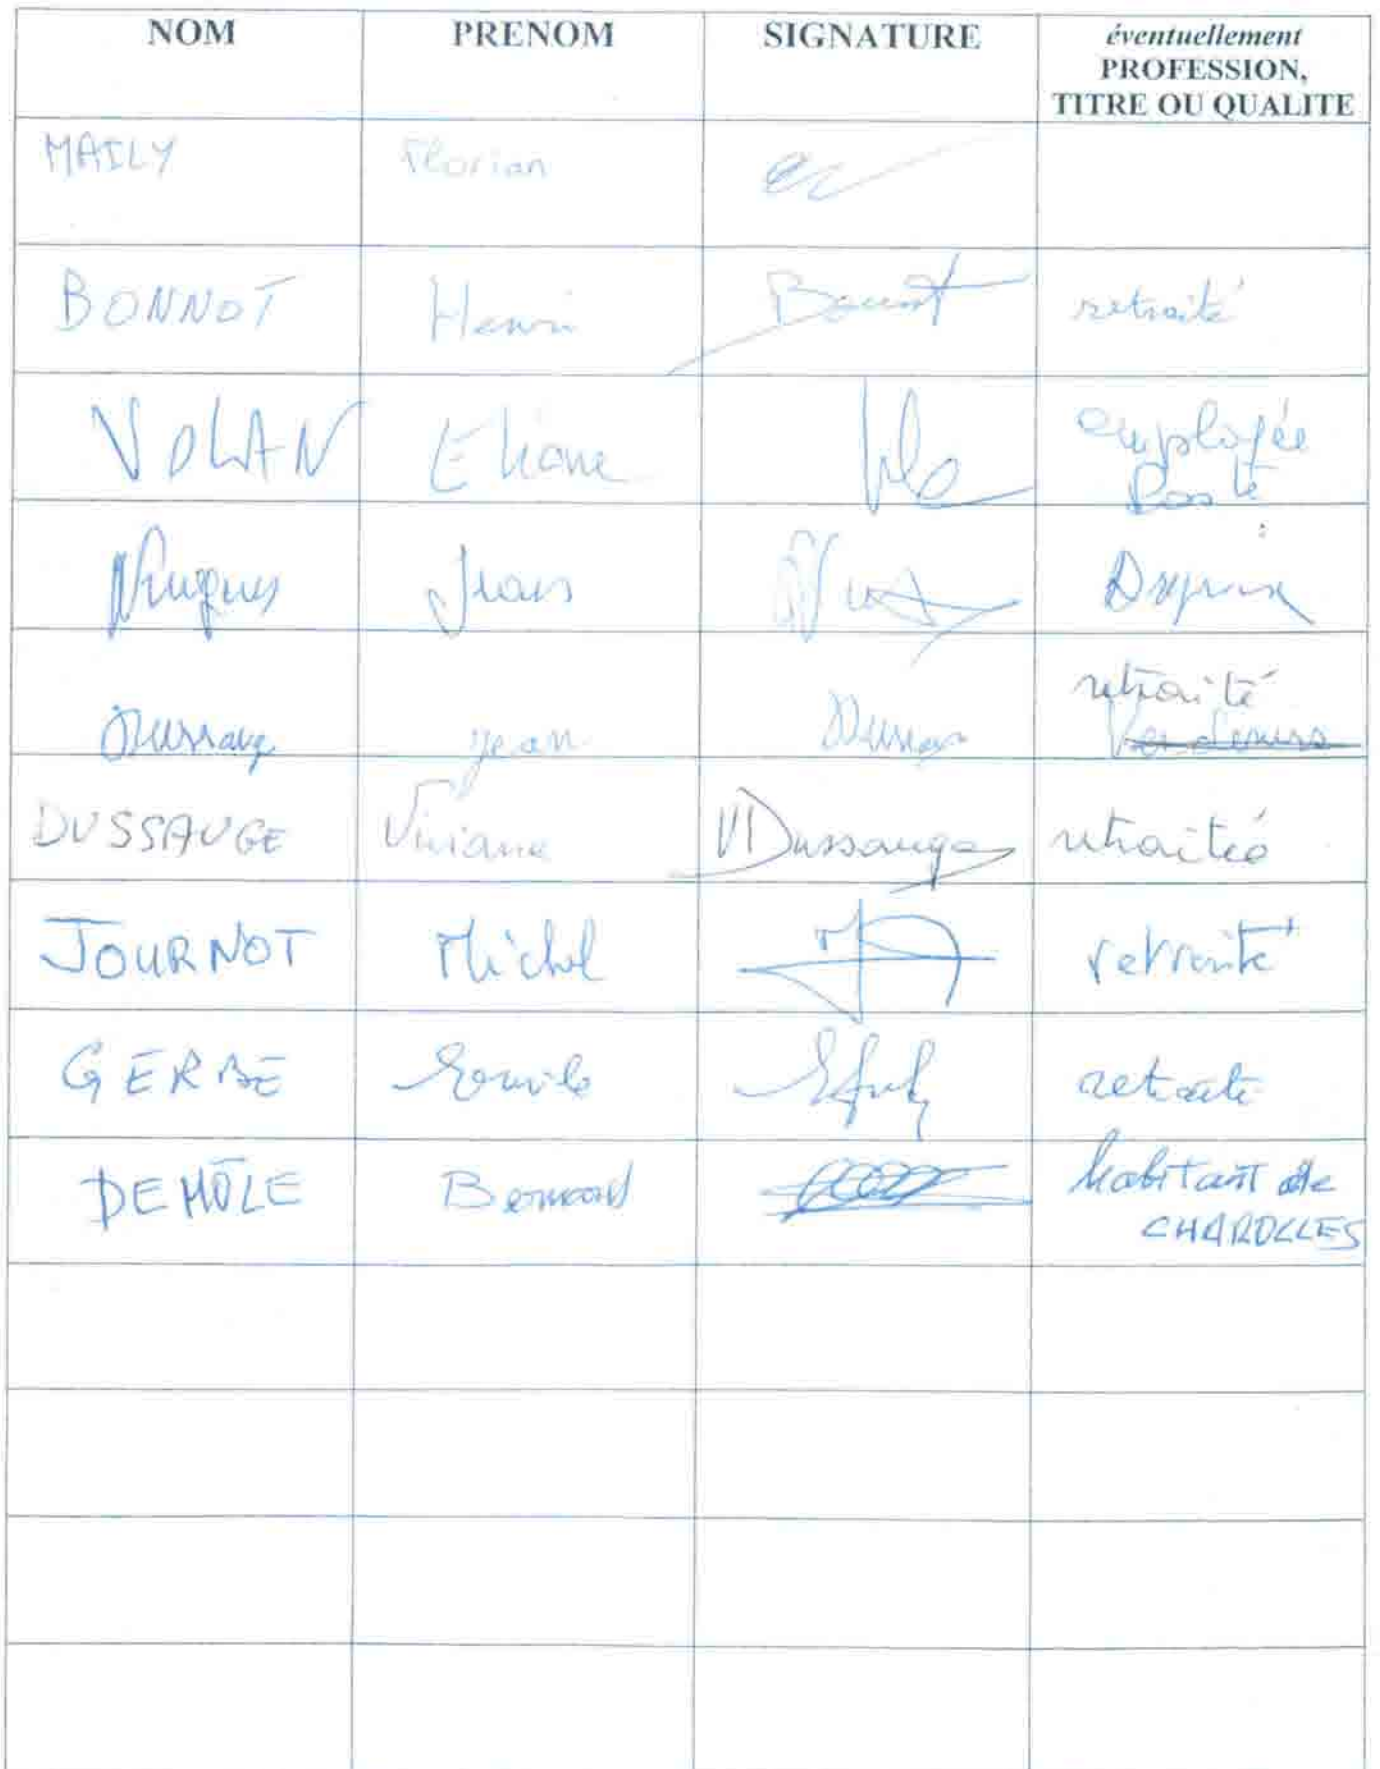 NOM PRENOM SIGNATURE éventuellement
PROFESSION,
TITRE OU QUALITE
MAILY Florian
BONNOT Henri Bonnot retraité
VOLAN Eliane employée
Poste
Nugues Jean
retraité
Dussauge Jean
DUSSAUGE Viviane VDussauge retraitée
JOURNOT Michel retraité
GERBE Emile retraité
DEMÔLE Bernard habitant de
CHAROLLES